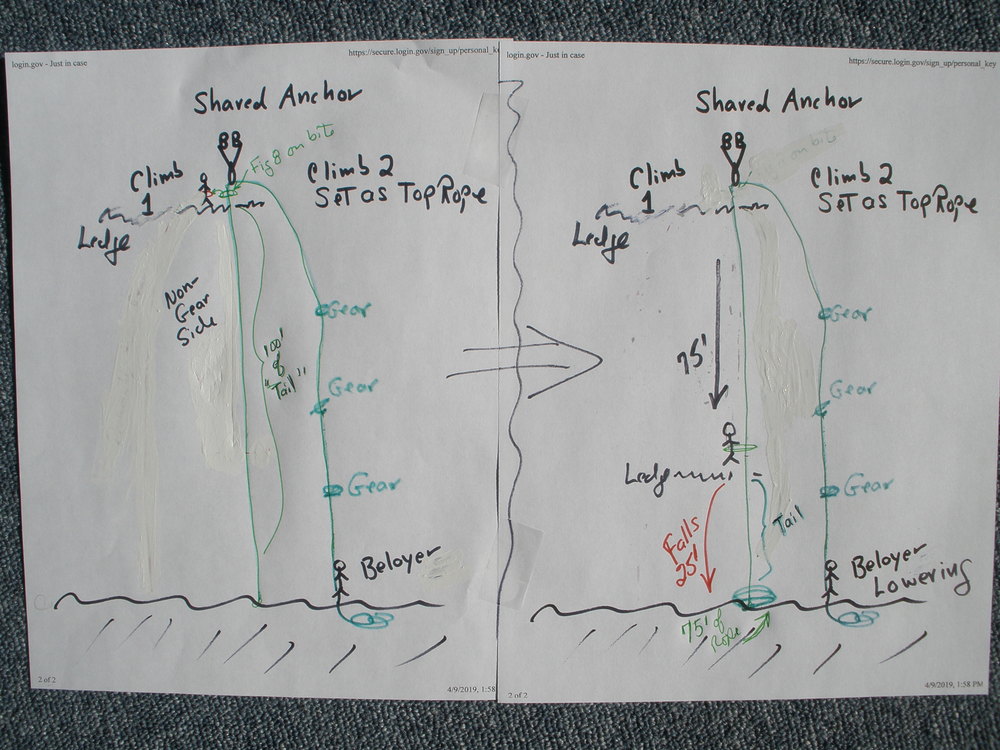 login.gov - Just in case
https://secure.login.gov/sign_up/personal_k
Shared Anchor
Fig 8 on bite
Climb
1
Climb 2
Set as Top Rope
Ledge
Non-
Gear
Side
100'
of
"Tail"
Gear
Gear
Gear
Belayer
2 of 2
4/9/2019, 1:58
login.gov - Just in case
https://secure.login.gov/sign_up/personal_key
Shared Anchor
on bite
Climb
1
Climb 2
Set as Top Rope
Ledge
75'
Gear
Gear
Gear
Ledge
Tail
Falls
25'
Belayer
Lowering
75' of
Rope
2 of 2
4/9/2019, 1:58 PM